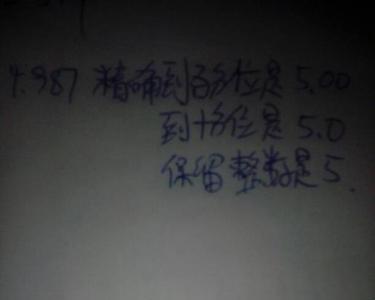 4.987 精确到百分位是 5.00
到十分位是 5.0
保留整数是 5.